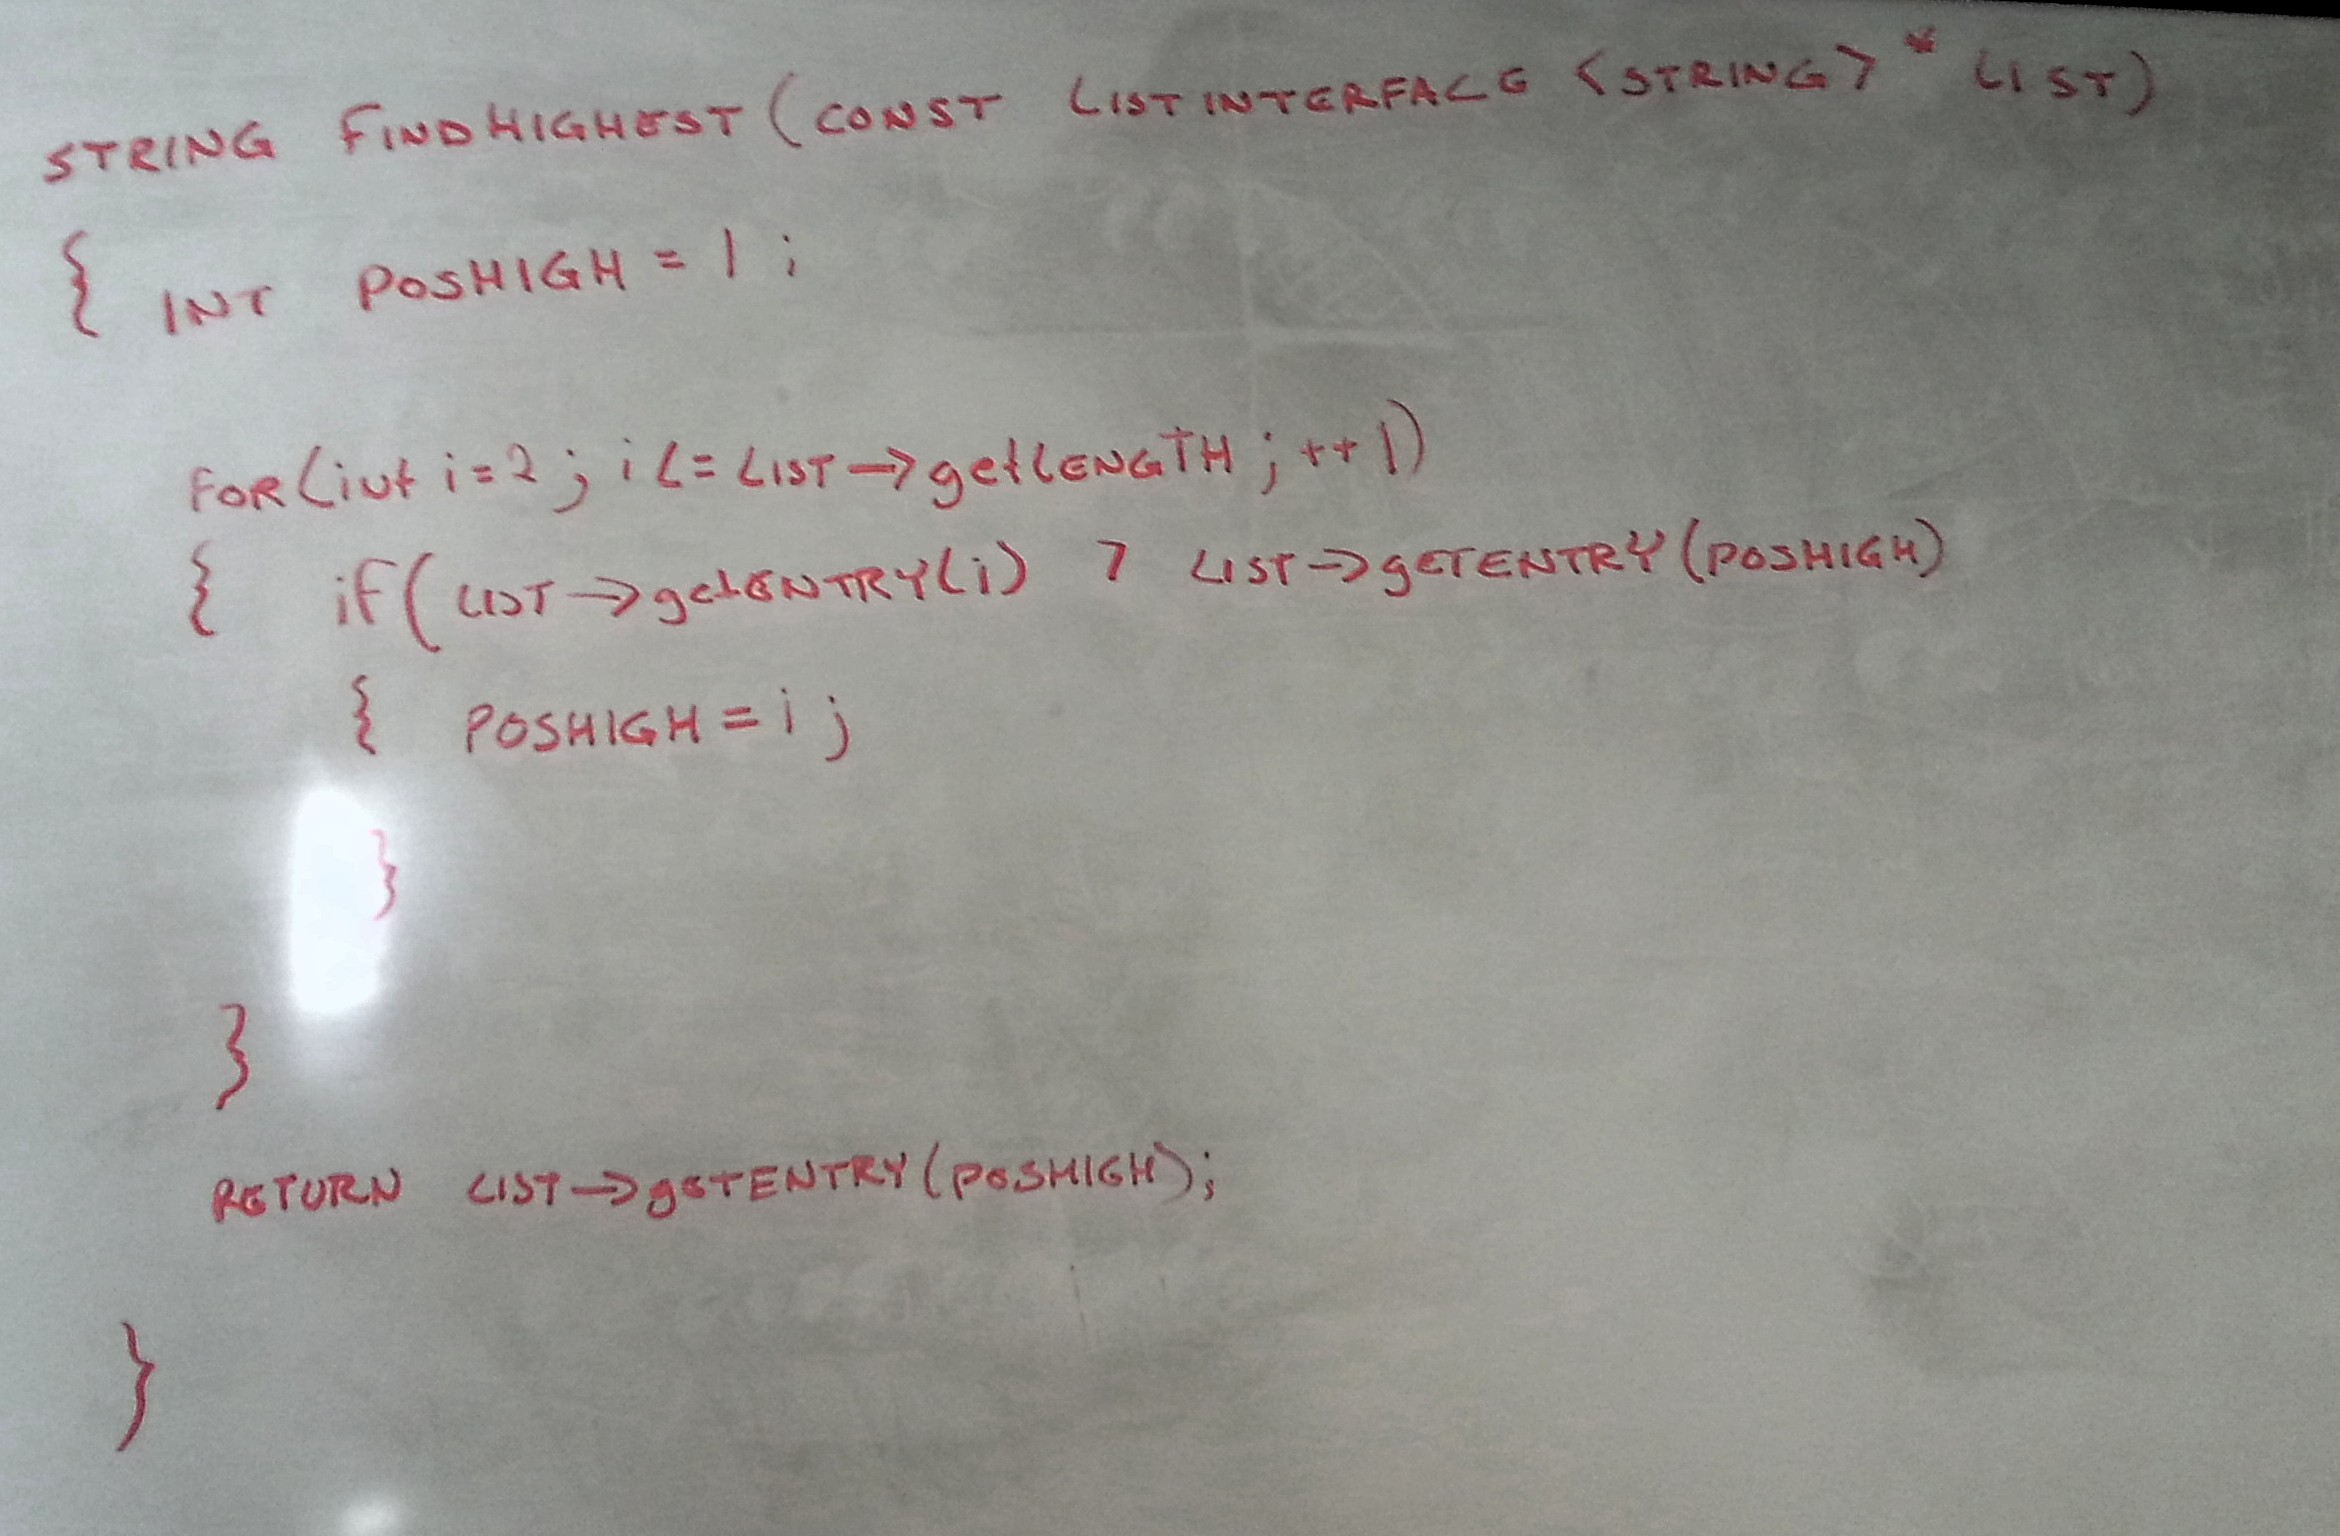 STRING FINDHIGHEST (CONST LISTINTERFACE <STRING> * LIST)
{ INT POSHIGH = 1 ;
FOR (int i = 2 ; i <= LIST -> getLENGTH ; ++ 1)
{ if ( LIST -> getENTRY (i) > LIST -> gETENTRY (POSHIGH)
{ POSHIGH = i ;
}
}
RETURN LIST -> gETENTRY (POSHIGH) ;
}